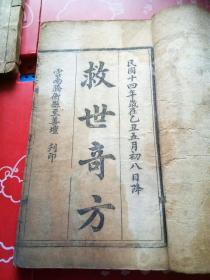 民國十四年歲在乙丑五月初八日降
救世奇方
雲南騰衝縣至善壇 刊印